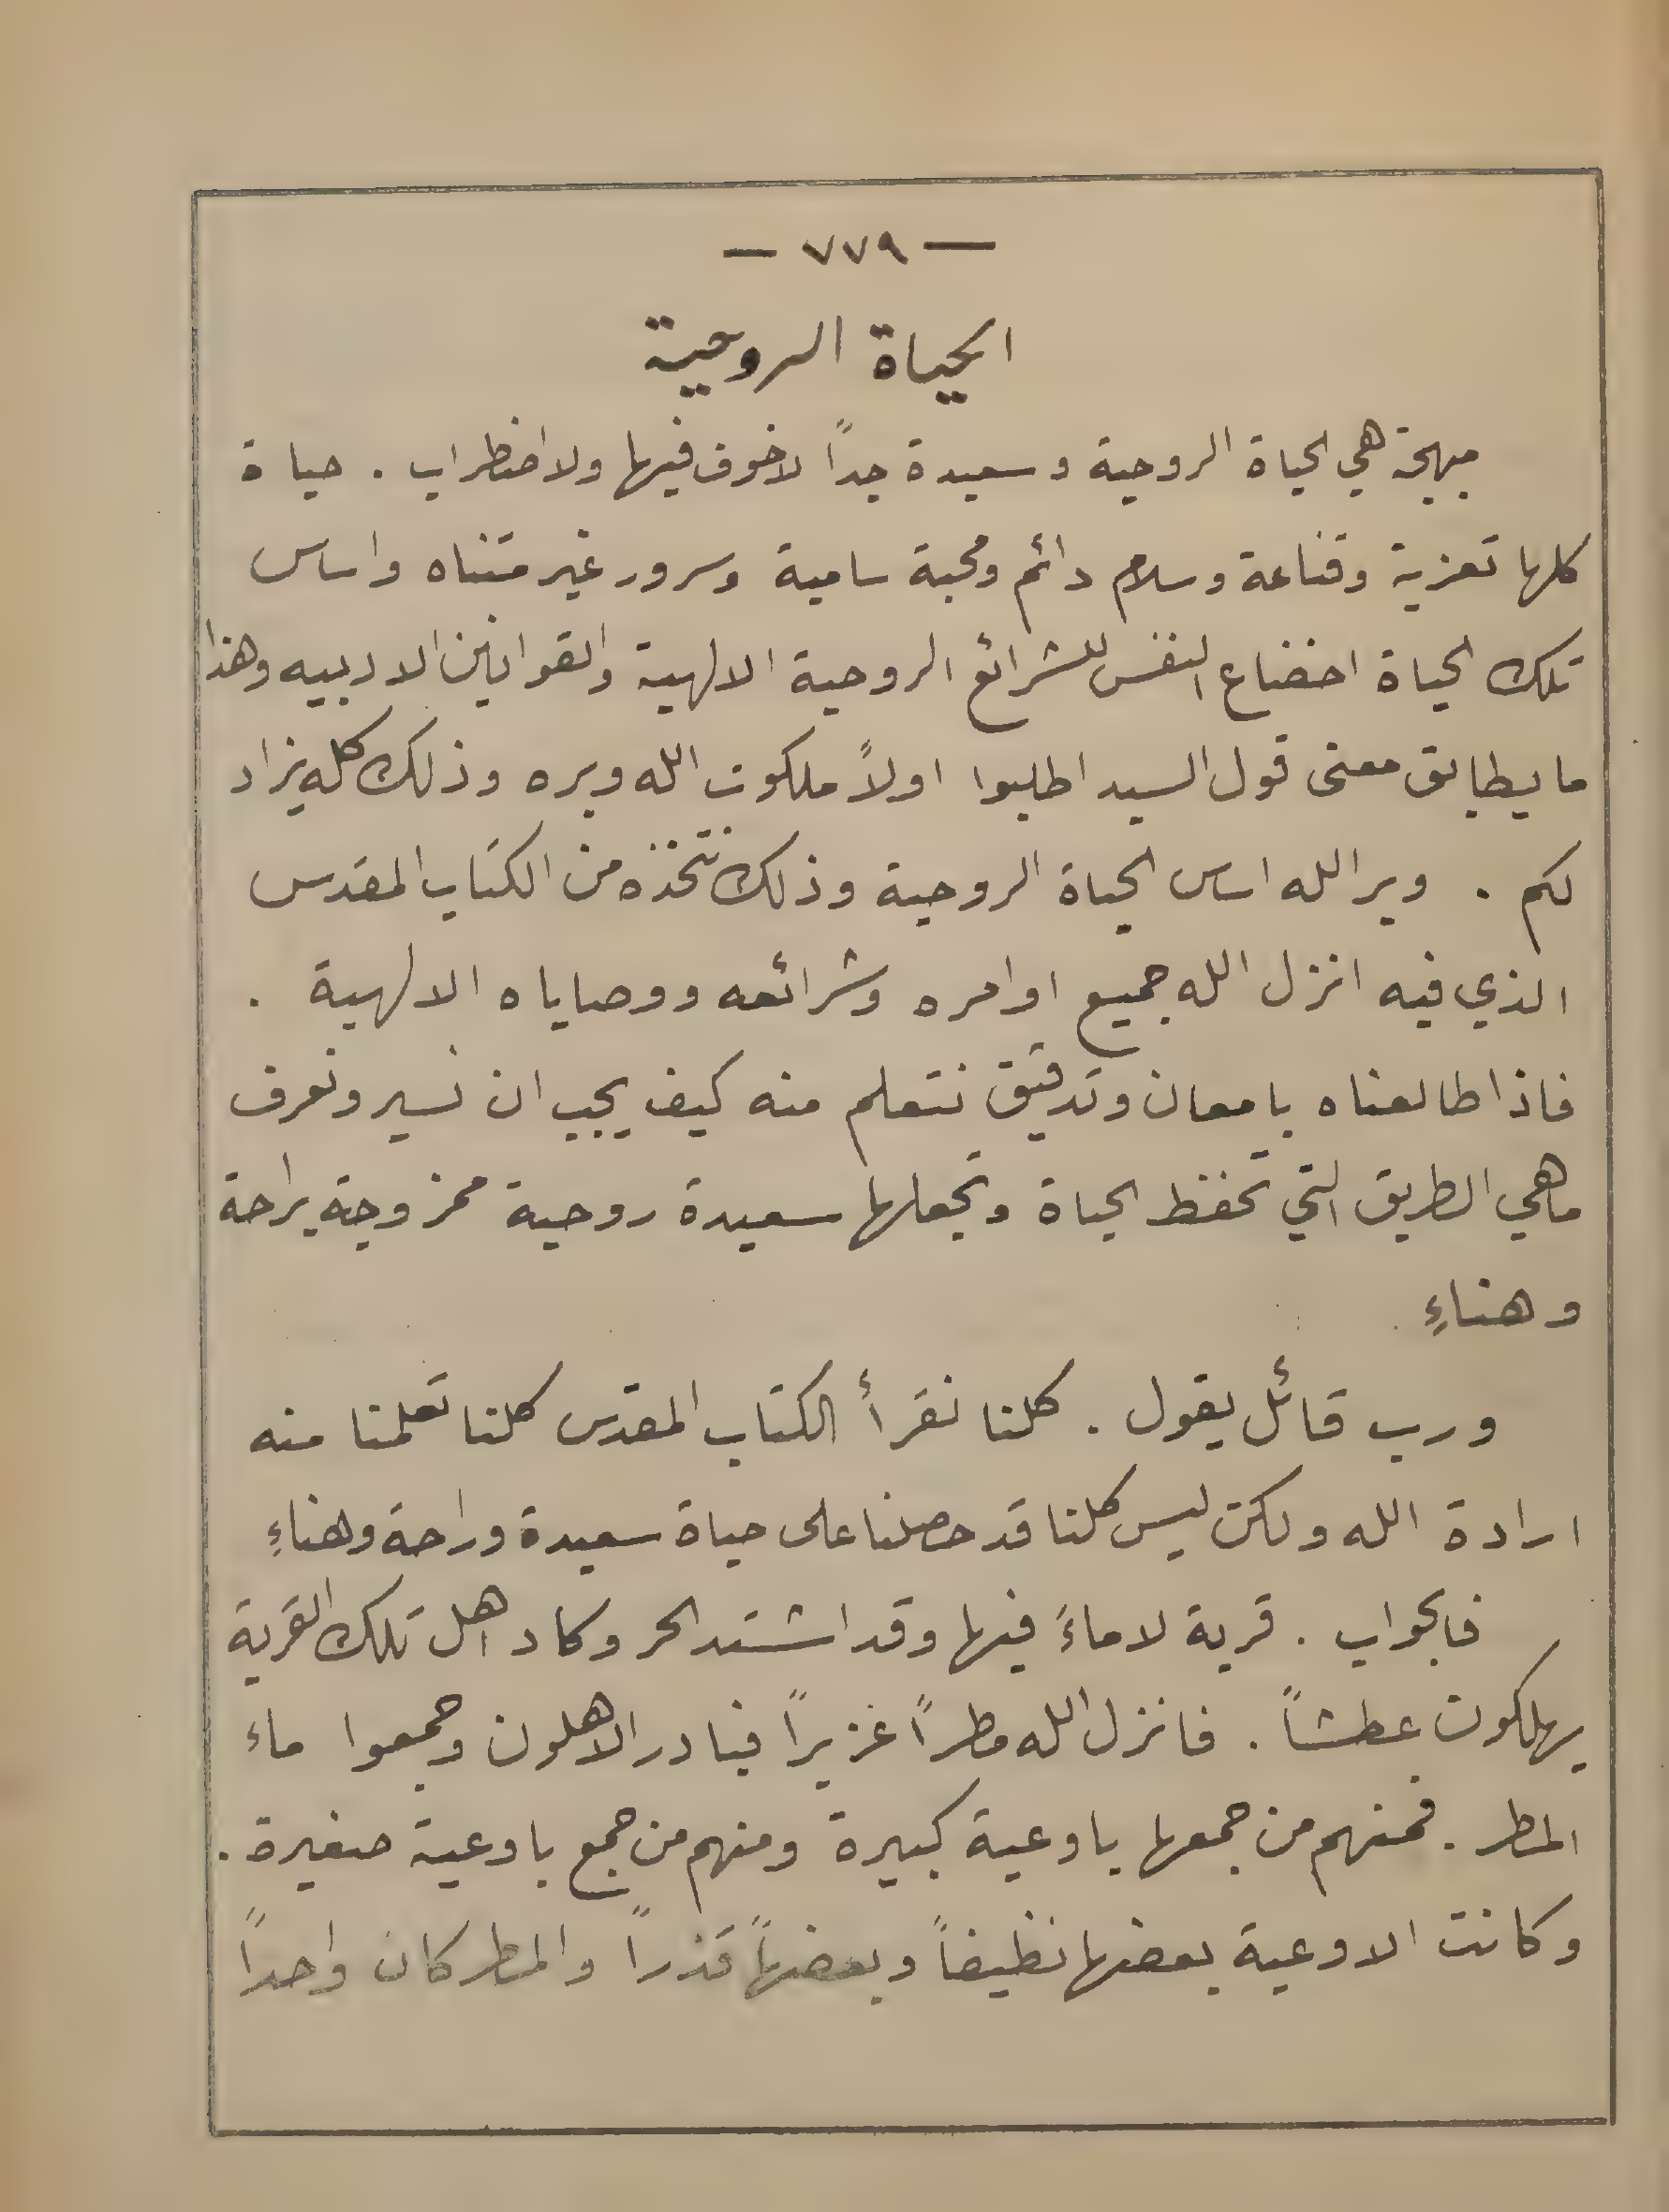 — ٧٧٩ —
الحياة الروحية
مبهجة هي الحياة الروحية وسعيدة جداً لا خوف فيها ولا اضطراب . حياة
كلها تعزية وقناعة وسلام دائم ومحبة سامية وسرور غير متناه واساس
تلك الحياة اخضاع النفس للشرائع الروحية الالهية والقوانين الادبيه وهذا
ما يطابق معنى قول السيد اطلبوا اولاً ملكوت الله وبره وذلك كله يزاد
لكم . وبر الله اساس الحياة الروحية وذلك نتخذه من الكتاب المقدس
الذي فيه انزل الله جميع اوامره وشرائعه ووصاياه الالهية .
فاذا طالعناه بامعان وتدقيق نتعلم منه كيف يجب ان نسير ونعرف
ما هي الطريق التي تحفظ الحياة وتجعلها سعيدة روحية ممزوجة براحة
وهناءِ
ورب قائل يقول . كلنا نقرأ الكتاب المقدس كلنا تعلمنا منه
ارادة الله ولكن ليس كلنا قد حصلنا على حياة سعيدة وراحة وهناءِ
فالجواب . قرية لا ماءَ فيها وقد اشتد الحر وكاد اهل تلك القرية
يهلكون عطشاً . فانزل الله مطراً غزيراً فبادر الاهلون وجمعوا ماء
المطر . فمنهم من جمعها باوعية كبيرة ومنهم من جمع باوعية صغيرة .
وكانت الاوعية بعضها نظيفاً وبعضها قذراً والمطر كان واحداً